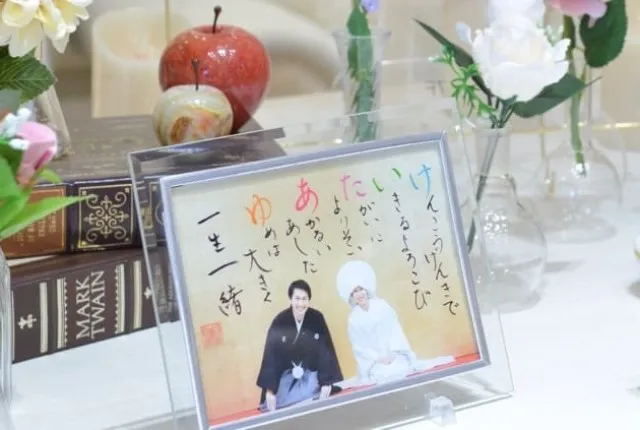 けんこうげんきで
いきるよろこび
たがいに
よりそい
あかるい
あした
ゆめは大きく
一生一緒
MARK TWAIN